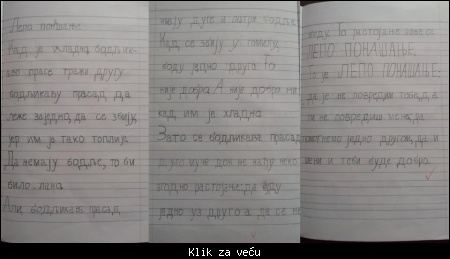 Лепо понашање.
Кад је хладно бодљик-
аво прасе тражи другу
бодљикаву прасад да
леже заједно, да се збију,
јер им је тако топлије.
Да немају бодље, то би
било лако.
Али, бодљикава прасад
имају дуге и оштре бодље.
Кад се збију у гомилу,
боду једно друго. То
није добро. А није добро ни
кад им је хладно.
Зато се бодљикава прасад
док не нађу неко
згодно растојање: да буду
једно уз друго а да се не
боду. То растојање зове се
ЛЕПО ПОНАШАЊЕ.
То је ЛЕПО ПОНАШАЊЕ:
да ја не повредим тебе, а
ти не повредиш мене, а
помогнемо једно другом, да и
мени и теби буде добро.
Klik za veću